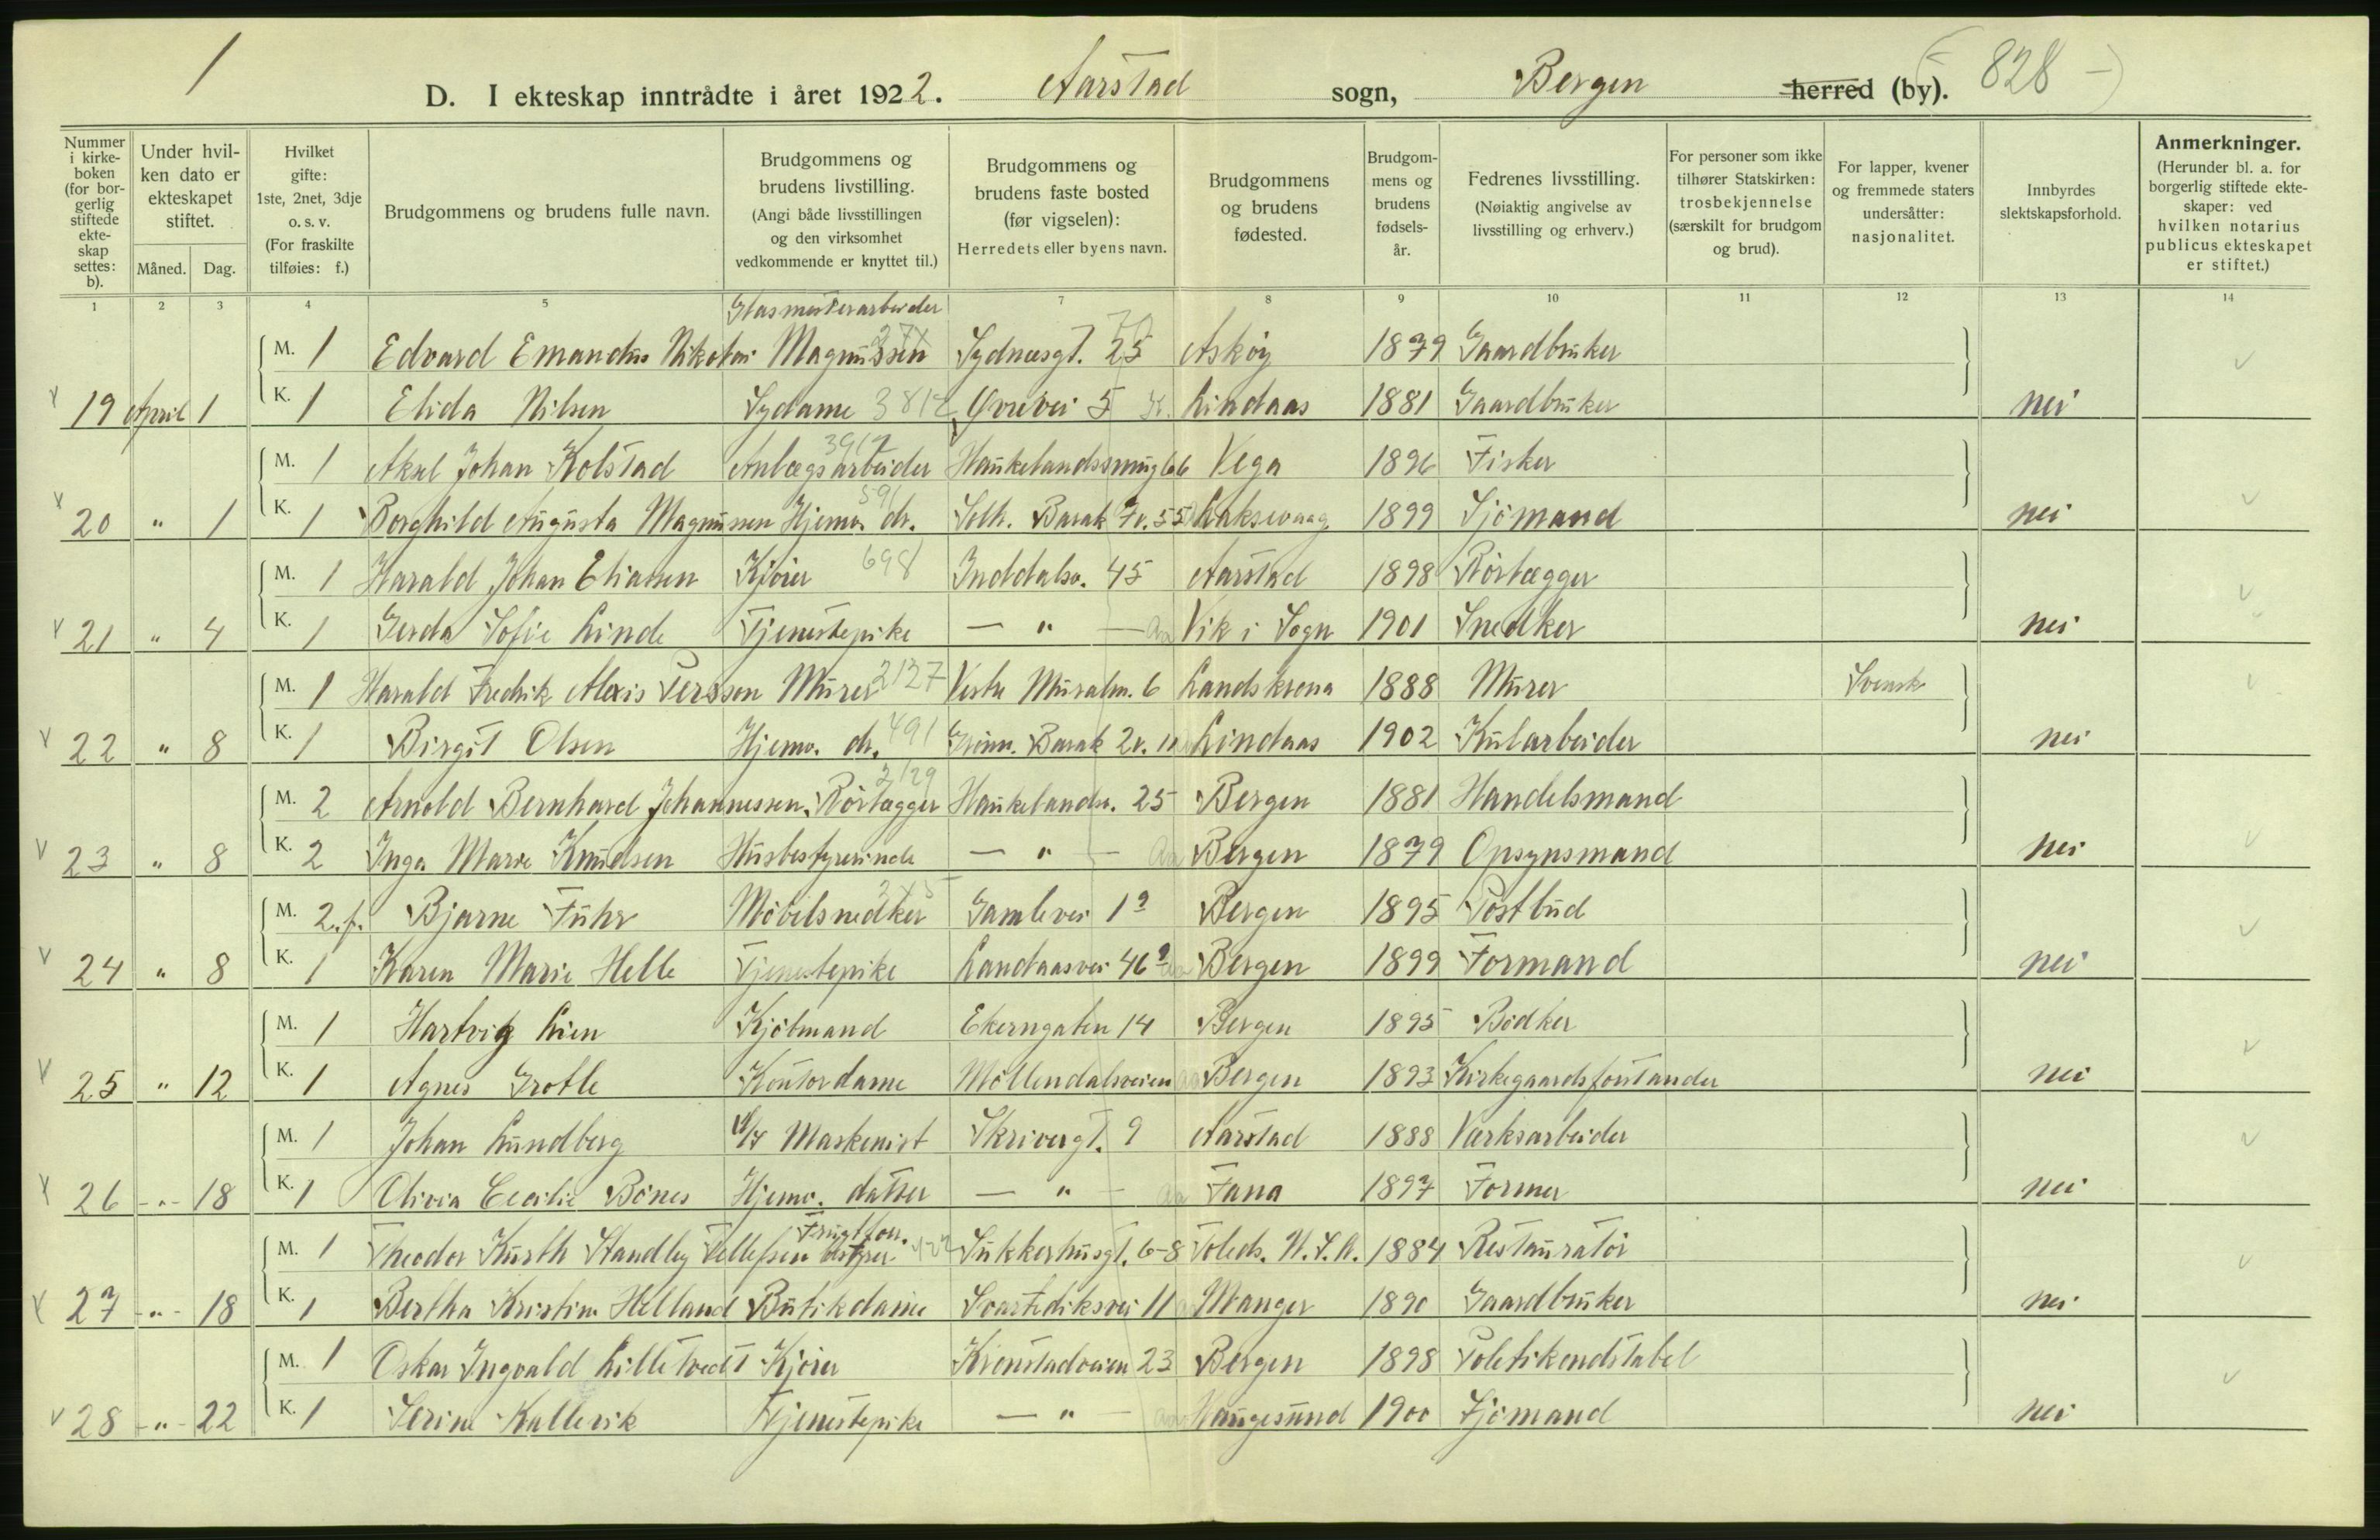 1
D. I ekteskap inntrådte i året 1922. Aarstad sogn, Bergen herred (by). (- 828 -)
Nummer i kirke-boken (for bor-gerlig stiftede ekte-skap settes: b).
Under hvil-ken dato er ekteskapet stiftet.
Måned. Dag.
Hvilket gifte: 1ste, 2net, 3dje o. s. v. (For fraskilte tilføies: f.)
Brudgommens og brudens fulle navn.
Brudgommens og brudens livstilling. (Angi både livsstillingen og den virksomhet vedkommende er knyttet til.)
Brudgommens og brudens faste bosted (før vigselen): Herredets eller byens navn.
Brudgommens og brudens fødested.
Brudgom-mens og brudens fødsels-år.
Fedrenes livsstilling. (Nøiaktig angivelse av livsstilling og erhverv.)
For personer som ikke tilhører Statskirken: trosbekjennelse (særskilt for brudgom og brud).
For lapper, kvener og fremmede staters undersåtter: nasjonalitet.
Innbyrdes slektskapsforhold.
Anmerkninger. (Herunder bl. a. for borgerlig stiftede ekte-skaper: ved hvilken notarius publicus ekteskapet er stiftet.)
1 2 3 4 5 6 7 8 9 10 11 12 13 14
Glasmesterarbeider
M. 1 Edvard Emandus Nikolai Magnussen Sydnesgt. 25 Askøy 1879 Gaardbruker
19 April 1 K. 1 Elida Nilsen Sydame 3812 Øvrevei 5 Lindaas 1881 Gaardbruker nei
M. 1 Aksel Johan Kolstad Anlægsarbeider Haukelandssmug 66 Vega 1896 Fisker
20 " 1 K. 1 Borghild Augusta Magnussen Hjemv. dr. Solh. Barak Fv. 55 Laksevaag 1899 Sjömand nei
M. 1 Harald Johan Eliassen Kjörer 698 Inddalsv. 45 Aarstad 1898 Rörlægger
21 " 4 K. 1 Gerda Sofie Linde Tjenestepike — " — Aa Vik i Sogn 1901 Snedker nei
M. 1 Harald Fredrik Alexis Persson Murer 2127 Vestre Muralm. 6 Landskrona 1888 Murer Svensk
22 " 8 K. 1 Birgit Olsen Hjemv. dr. 491 Grønn. Barak 2v. 10 Lindaas 1902 Kularbeider nei
M. 2 Arnold Bernhard Johannessen Rörlægger Haukelandsv. 25 Bergen 1881 Handelsmand
23 " 8 K. 2 Inga Marie Knudsen Husbestyrerinde — " — Aa Bergen 1879 Opsynsmand nei
M. 2.f. Bjarne Fuhr Möbelsnedker Gamlevei 1a Bergen 1895 Postbud
24 " 8 K. 1 Karen Marie Helle Tjenestepike Landaasvei 46a Bergen 1899 Formand nei
M. 1 Hartvig Lien Kjölmand Ekerngaten 14 Bergen 1895 Bödker
25 " 12 K. 1 Agnes Grotle Kontordame Möllendalsveien Bergen 1893 Kirkegaardsforstander nei
M. 1 Johan Lundberg Maskenist Skrivergt. 9 Aarstad 1888 Værksarbeider
26 - " - 18 K. 1 Olivia Cecilie Bönes Hjemv. datter — " — Aa Fana 1897 Former nei
Frugtforr.
M. 1 Theodor Kurth Standley Tellefsen bestyrer Sukkerhusgt. 6-8 Toledo. U.S.A. 1884 Restauratör
27 - " - 18 K. 1 Bertha Kristine Helland Butikdame Svartediksvei 11 Manger 1890 Gaardbruker nei
M. 1 Oskar Ingvald Lilletvedt Kjörer Kronstadveien 23 Bergen 1898 Politikonstabel
28 - " - 22 K. 1 Serine Kallevik Tjenestepike — " — Haugesund 1900 Sjömand nei